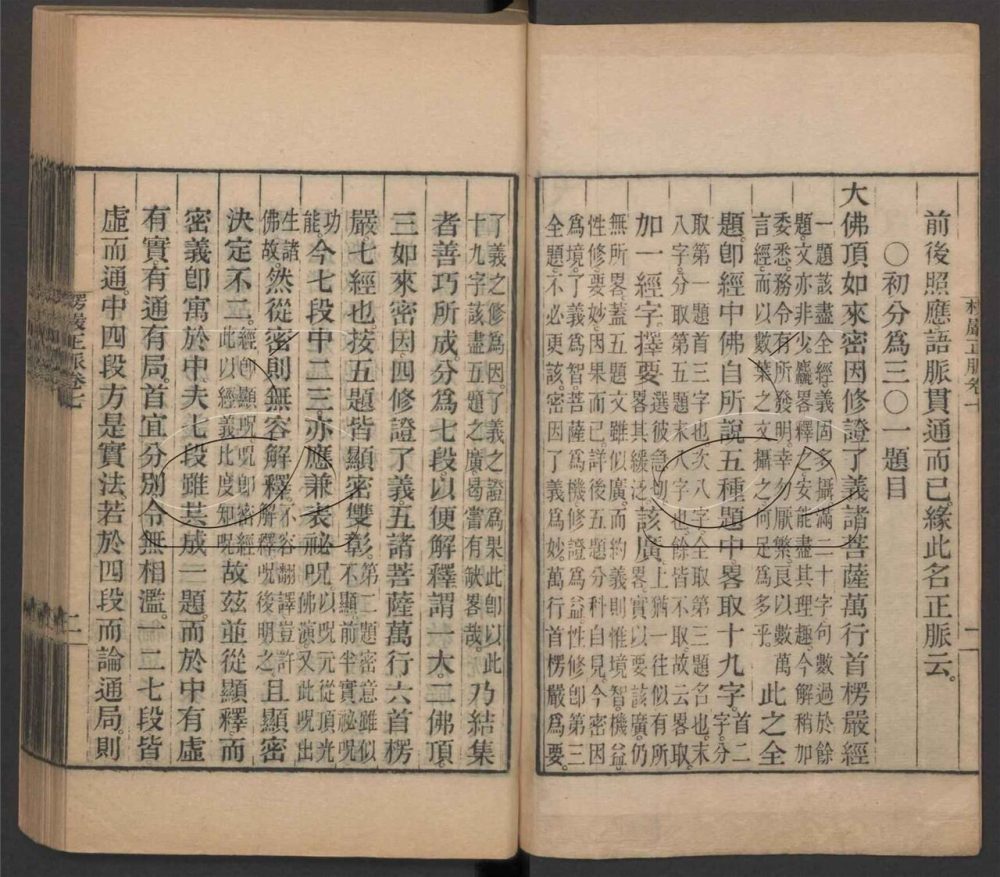 楞嚴正脈卷一 一
前後照應語脈貫通而已緣此名正脈云。
〇初分為三〇一題目
大佛頂如來密因修證了義諸菩薩萬行首楞嚴經
一題該盡全經義固多攝滿二十字句數過於餘
題文亦非少麤畧釋之安能盡其理趣今解稍加
委悉務令有所發明幸勿厭繁良以數萬
言經而以數葉之文攝之何足為多乎。此之全
題即經中佛自所說五種題中畧取十九字。首二字分
取第一題首三字也次八字全取第三題名也末
八字分取第五題末八字也餘皆不取故云畧取。
加一經字擇要選彼急切畧其緩泛該廣上猶一往似有所畧實以要該廣仍
無所畧葢五題文雖似廣而約義則惟境智機益
性修要妙因果而已詳後五題分科自見今密因
為境了義為智菩薩為機修證為益性修即第三
全題不必更該密因了義為妙萬行首楞嚴為要。
了義之修為因了義之證為果此即以此
十九字該盡五題之廣曷嘗有缺畧哉。乃結集
者善巧所成分為七段以便解釋謂一大二佛頂
三如來密因四修證了義五諸菩薩萬行六首楞
嚴七經也按五題皆顯密雙彰第三題密意雖似不顯前半實祕呪
功能。今七段中二三亦應兼表祕呪以呪元從頂光佛演又此呪出
生諸佛故然從密則無容解釋不容翻譯豈許解釋呪後明之且顯密
決定不二經即顯呪呪即密經此以經義比度知呪故茲並從顯釋而
密義即寓於中夫七段雖共成一題而於中有虛
有實有通有局首宜分別令無相濫一二七段皆
虛而通中四段方是實法若於四段而論通局則
楞嚴正脈卷一 二